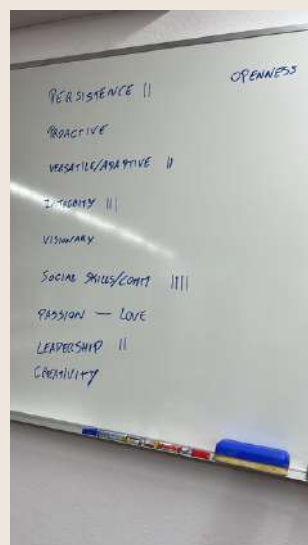 OPENNESS
PERSISTENCE ||
PROACTIVE
VERSATILE/ADAPTIVE ||
INTEGRITY |||
VISIONARY
SOCIAL SKILLS/COMM ||||
PASSION — LOVE
LEADERSHIP ||
CREATIVITY